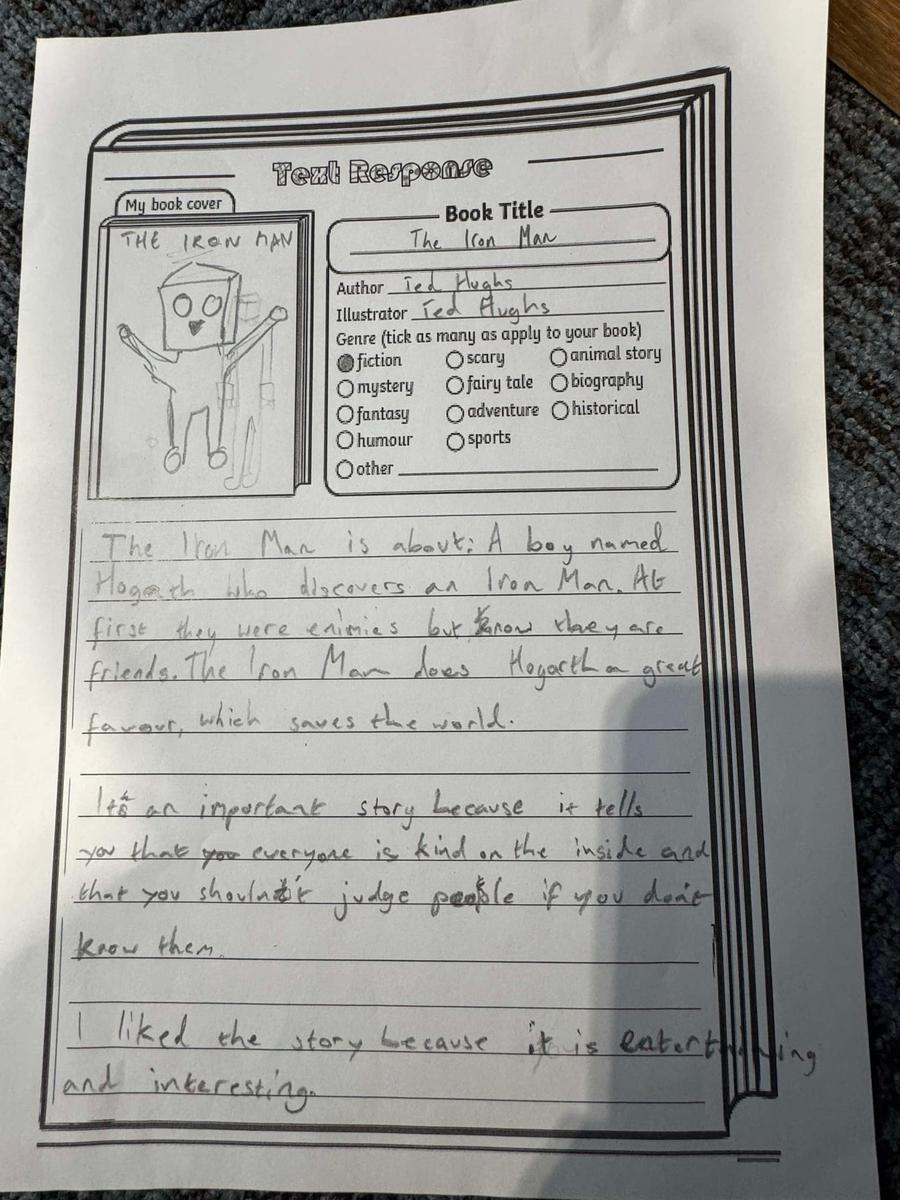 Text Response
My book cover
THE IRON MAN
Book Title
The Iron Man
Author Ted Hughs
Illustrator Ted Hughs
Genre (tick as many as apply to your book)
fiction scary animal story
mystery fairy tale biography
fantasy adventure historical
humour sports
other
The Iron Man is about: A boy named
Hogarth who discovers an Iron Man. At
first they were enimies but know they are
friends. The Iron Man does Hogarth a great
favour, which saves the world.
It's an important story because it tells
you that everyone is kind on the inside and
that you shouldn't judge people if you don't
know them.
I liked the story because it is entertaining
and interesting.